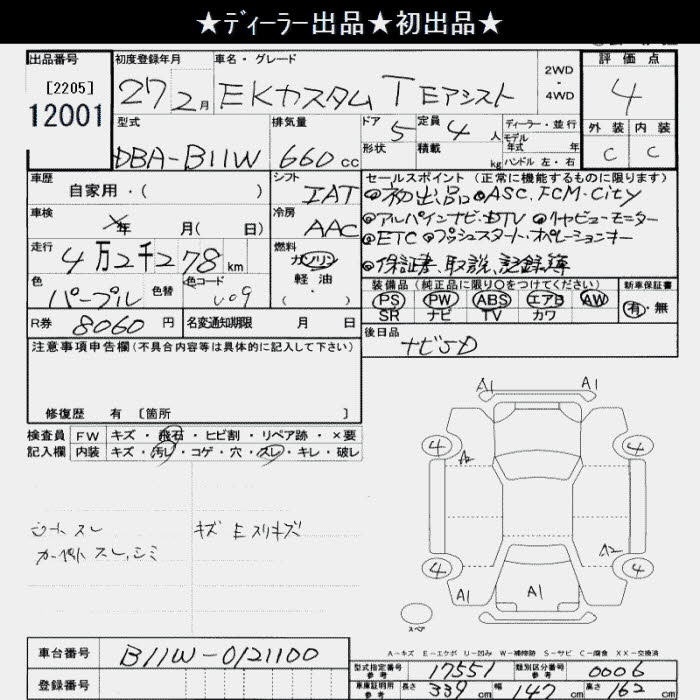 ★ディーラー出品★初出品★
出品番号 初度登録年月 車名・グレード 2WD・4WD 評価点
[2205] 12001 27 2月 EKカスタム T Eアシスト 4
型式 排気量 ドア 5 定員 4人 ディーラー・並行 外装 内装
形状 積載 kg モデル年式 年 ハンドル 左・右
DBA-B11W 660cc C C
車歴 自家用・( ) シフト IAT セールスポイント (正常に機能するものに限ります)
初出品 ASC. FCM-City
車検 年 月( 日) 冷房 AAC アルパインナビ・DTV
走行 4万2千278km 燃料 ガソリン 軽油 ( ・ ) ETC プッシュスタート・オペレーションキー
保証書、取説、記録簿
色 パープル 色替 色コード U09 装備品(純正品に限り○をつけてください) 新車保証書
PS PW ABS エアB AW 有・無
SR ナビ TV カワ
R券 8060円 名変通知期限 月 日 後日品
ナビSD
注意事項申告欄(不具合内容等は具体的に記入して下さい)
修復歴 有 [箇所 ]
検査員記入欄 FW キズ・飛石・ヒビ割・リペア跡・×要
内装 キズ・汚レ・コゲ・穴・スレ・キレ・破レ
A1 A1
4 4
A2
シートスレ キズEスリキズ
カーペットスレ、シミ
A2
4 4
A1 A1
スペア
A-キズ E-エクボ U-凹み W-補修跡 S-サビ C-腐食 XX-交換済
車台番号 B11W-0121100
型式指定番号 参考 17551 類別区分番号 参考 0006
登録番号
車庫証明用 参考 長さ 339cm 幅 147cm 高さ 162cm